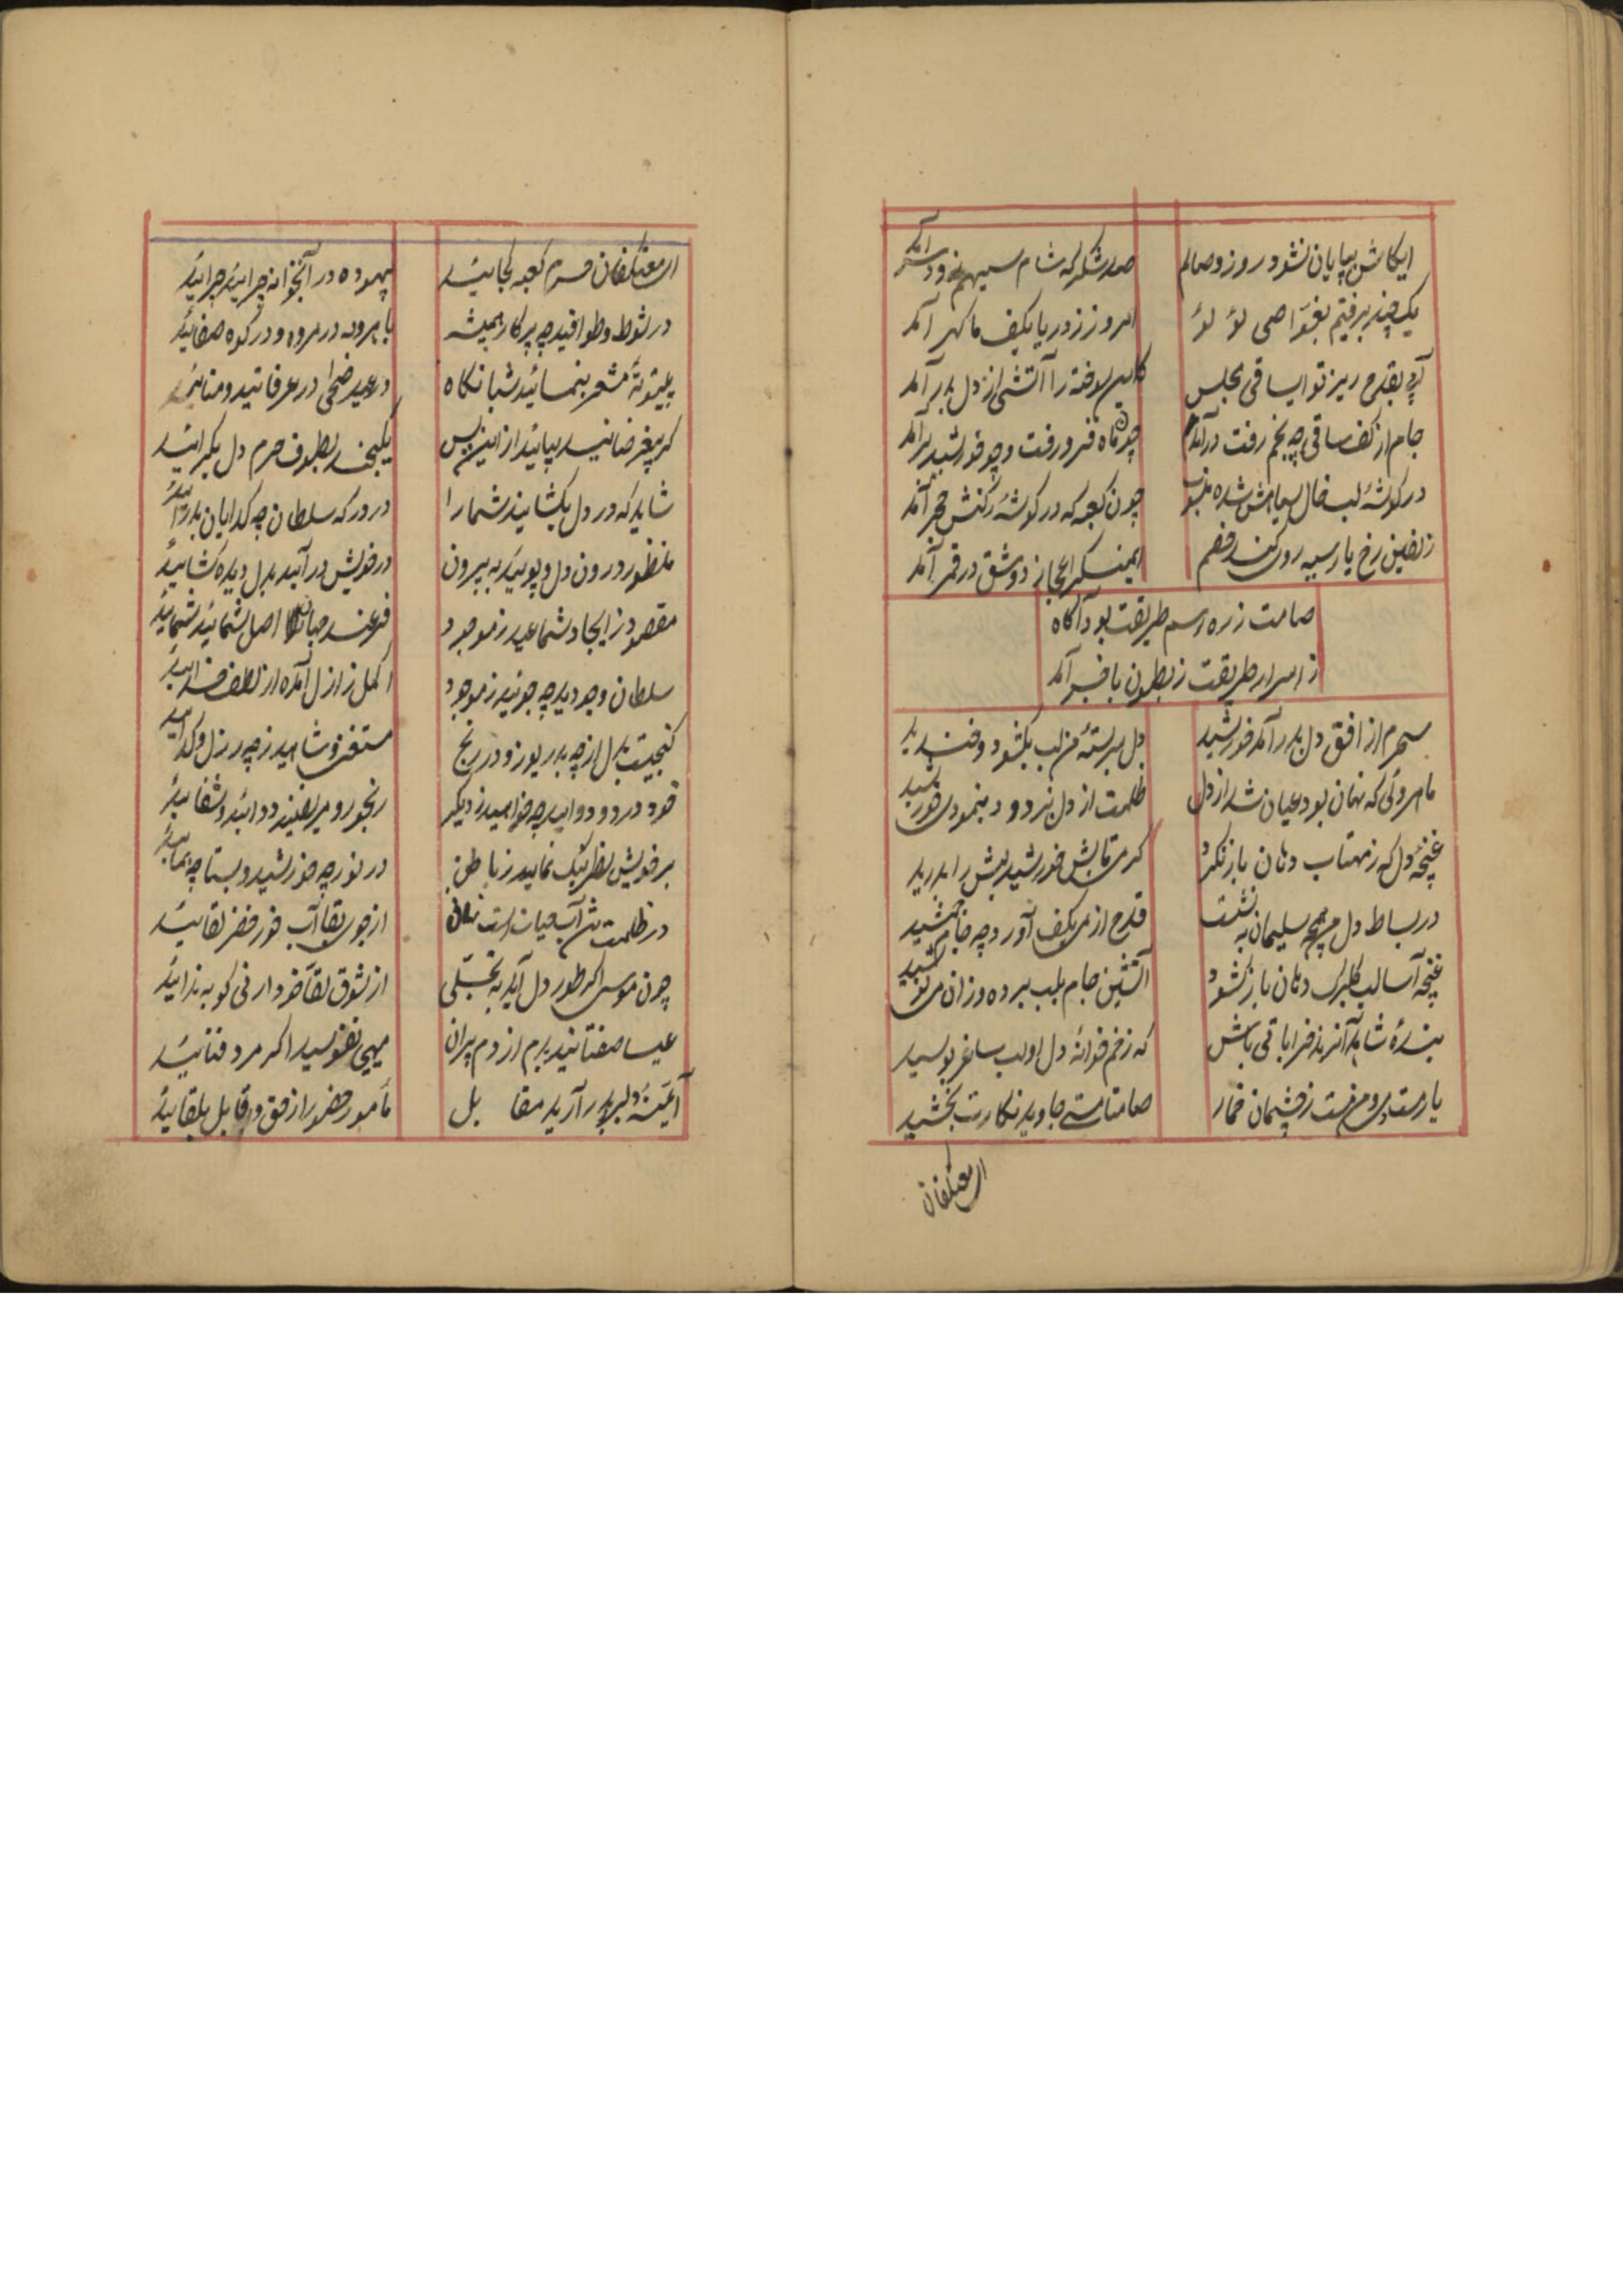 ایکاش بپایان نشود روز وصالم
صد شکر که شام سیهم زود سر آمد
یک چند برفتیم بغواصی لؤ لؤ
امروز ز دریا بکف ما گهر آمد
آبی بقدح ریز تو ایساقی مجلس
کاین سوخته را آتشی از دل بدر آمد
جام از کف ساقی چه بخم رفت در آمد
چون ماه فرو رفت و چو خورشید بر آمد
در گوشهٔ لب خال سیاهش شده
چون کعبه که در گوشهٔ رکنش حجر آمد
زلفین رخ یار سیه روی کند خصم
این معجاز دو شق در قمر آمد
صامت ز ره و رسم طریقت بود آگاه
ز اسرار طریقت ز بطون با خبر آمد
سحرم از افق دل بدر آمد خورشید
دل سربستهٔ من لب بگشود و خندید
ماهروئی که نهان بود عیان شد از دل
ظلمت از دل ببرد و بنمودی خورشید
غنچهٔ دل که ز مهتاب دهان باز نکرد
گرمی تابش خورشید لبش را بدرید
در بساط دل من چه سلیمان بنشست
قدح از می بکف آورد چه جام جمشید
غنچه آسا لب گلبرک دهان باز گشود
آتشین جام بلب برده و زان می نوشید
بندهٔ شاهد آنرند خراباتی باش
که ز خم دل او لب ساغر بوسید
یار مست می و من مست ز چشمان خمار
صامتا مستی جاوید نگارت بخشید
ای معتکفان
ای معتکفان حرم کعبه کجائید
بیهوده در آنخانه چرائید چرائید
در شوط و طوافید چه پرگار همیشه
با هروله در مروه و در کوه صفائید
بیتوته مشعر بنمائید شبانگاه
در عید ضحی در عرفاتید و منائید
گر بیغرضانید بیائید ازین پس
یکچند بطوف حرم دل بگرائید
شاید که در دل بگشایند شما را
در درگه سلطان چه گدایان بدر آئید
منظور درون دل و پوئید به بیرون
در خویش در آئید بدل دیده گشائید
مقصود ز ایجاد شمائید ز موجود
فرعند جهان اصل شمائید شمائید
سلطان وجودید چه جوئید ز موجود
اکمل ز ازل آمده از لطف خدائید
گنجیست بدل از چه بدریوزه و در رنج
مستغنی و شاهید ز چه رذل و گدائید
خود درد و دوائید چه خواهید ز دیگر
رنجور و مریضید دوائید و شفائید
بر خویش نظر نیک نمائید ز باطن
در نور چه خورشید و بتابید
در ظلمت تن آب حیات است نهان
از جوی بقا آب خور خضر لقائید
چون موسی اگر طور دل آید به تجلی
از شوق لقا ارنی گو به ندائید
عیسا صفتانید بدم از دم پیران
میحی نفوسید اگر مرد فنائید
آئینهٔ دلبر بدر آرید مقا بل
مأمور حضور از حق و قابل بلقائید